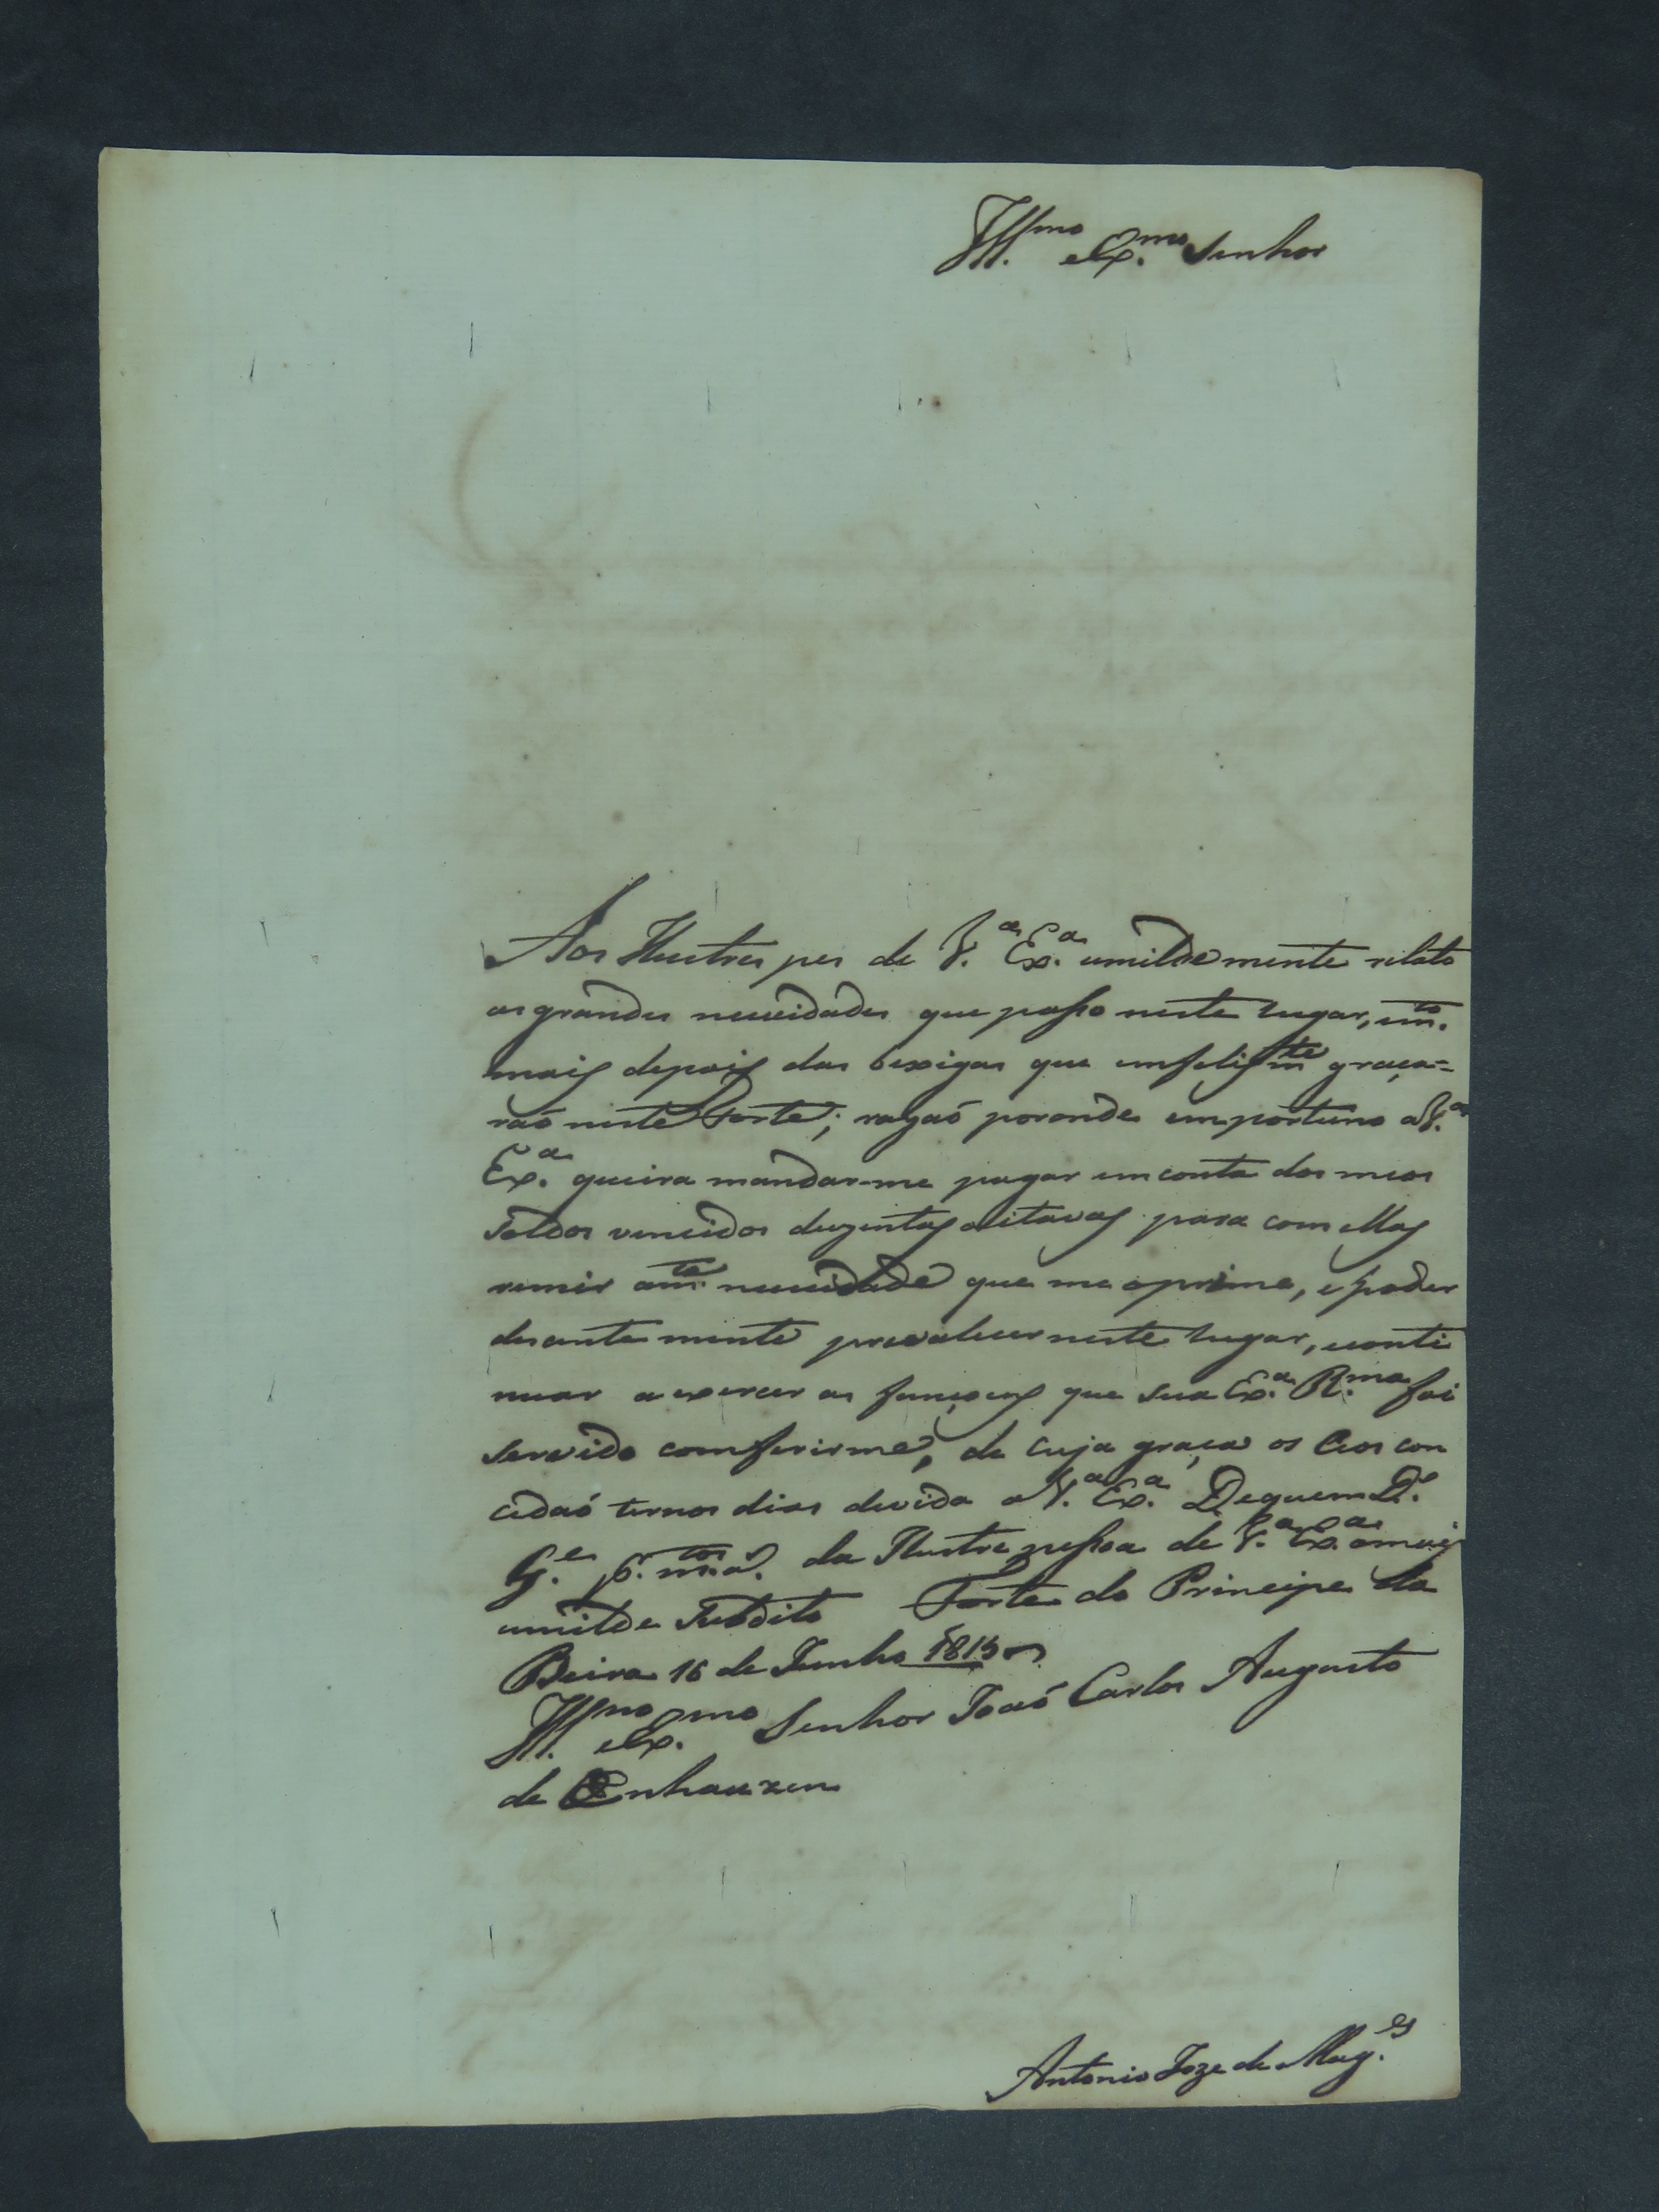 Ill.mo e Ex.mo Senhor
Aos Ilustres pes de V.a Ex.a umildemente relato
as grandes necesidades que passo neste lugar, em.to
mais depois das bexigas que emfelism.te graça=
raó neste Forte; razaó poronde emportuno a V.a
Ex.a queira mandar-me pagar em conta dos meos
soldos vencidos duzentas oitavas para com ellas
remir am.ta necesidade que me oprime, e poder
desentemente prevalecer neste lugar, econti
nuar a exercer as funçoens que sua Ex.a R.ma foi
servido comferirme, de cuja graça os Ceos con
cedaó ternos dias devida a V.a Ex.a Dequem D.s
G.e p.r m.tos a.s da Ilustre pessoa de V.a Ex.a omais
umilde Subdito Forte do Principe da
Beira 16 de Junho 1815
Ill.mo e Ex.mo Senhor Joaó Carlos Augusto
de Oenhauzen
Antonio Joze de Mag.es